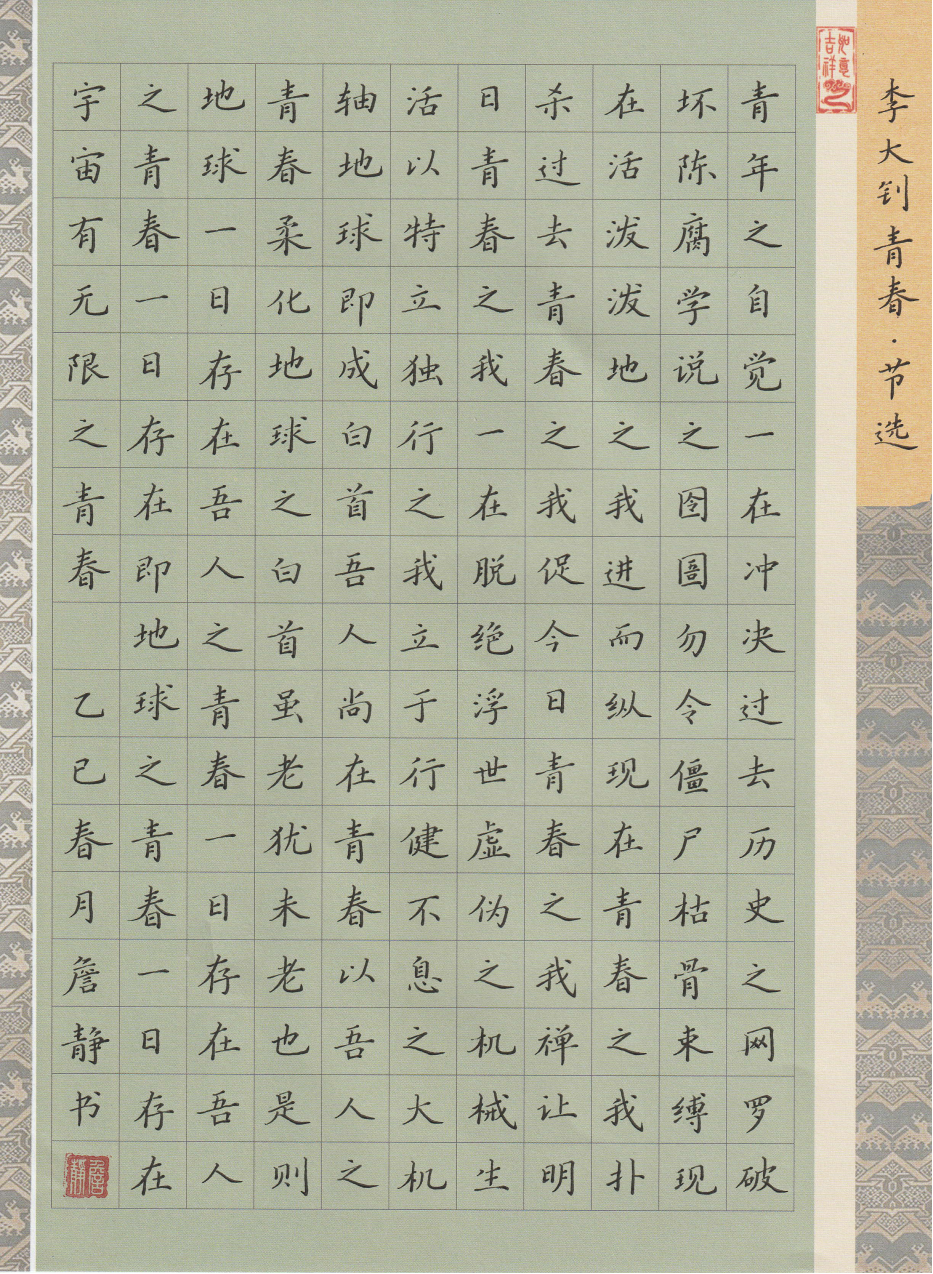 李大钊青春·节选
如意吉祥
青年之自觉一在冲决过去历史之网罗破
坏陈腐学说之囹圄勿令僵尸枯骨束缚现
在活泼泼地之我进而纵现在青春之我扑
杀过去青春之我促今日青春之我禅让明
日青春之我一在脱绝浮世虚伪之机械生
活以特立独行之我立于行健不息之大机
轴地球即成白首吾人尚在青春以吾人之
青春柔化地球之白首虽老犹未老也是则
地球一日存在吾人之青春一日存在吾人
之青春一日存在即地球之青春一日存在
宇宙有无限之青春 乙巳春月詹静书
詹静